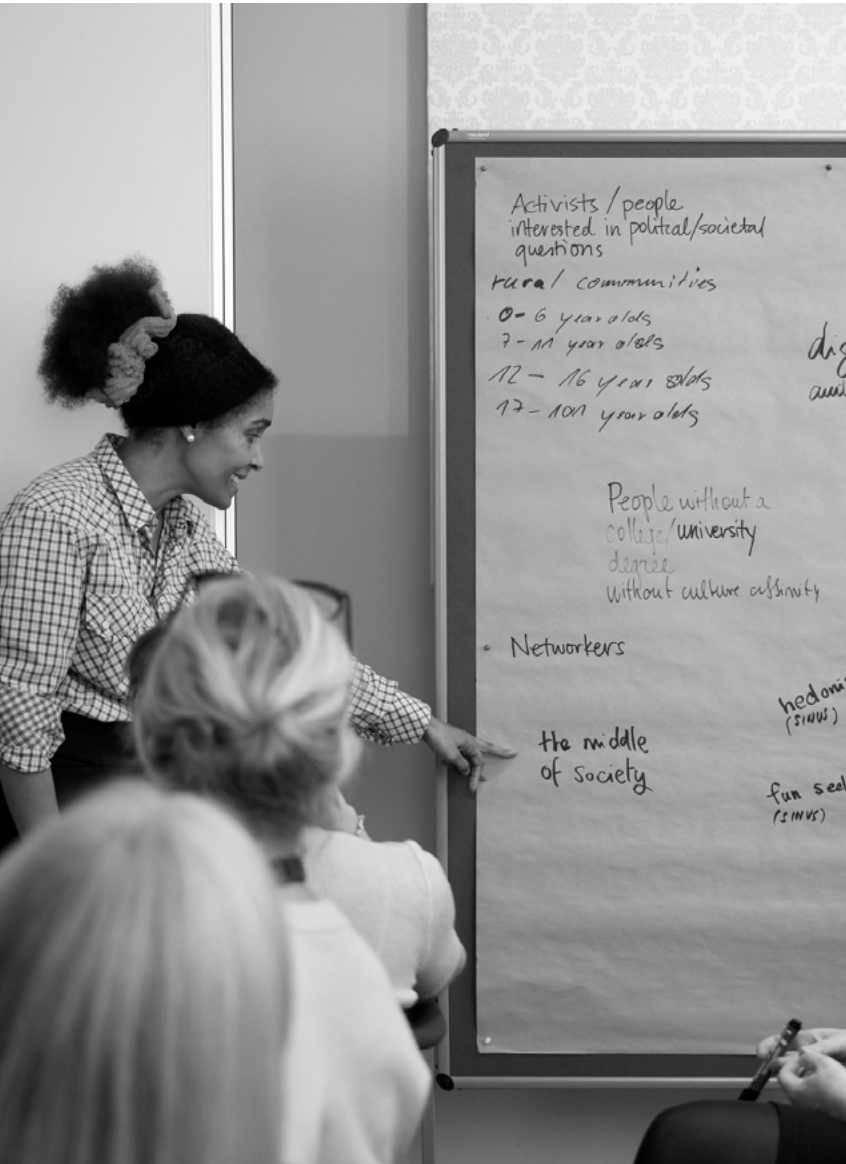 Activists / people
interested in political/societal
questions
rural communities
0-6 year olds
7-11 year olds
12 - 16 year olds
17-101 year olds
People without a
college/university
degree
without culture affinity
Networkers
the middle
of society
(SINUS)
fun
(SINUS)